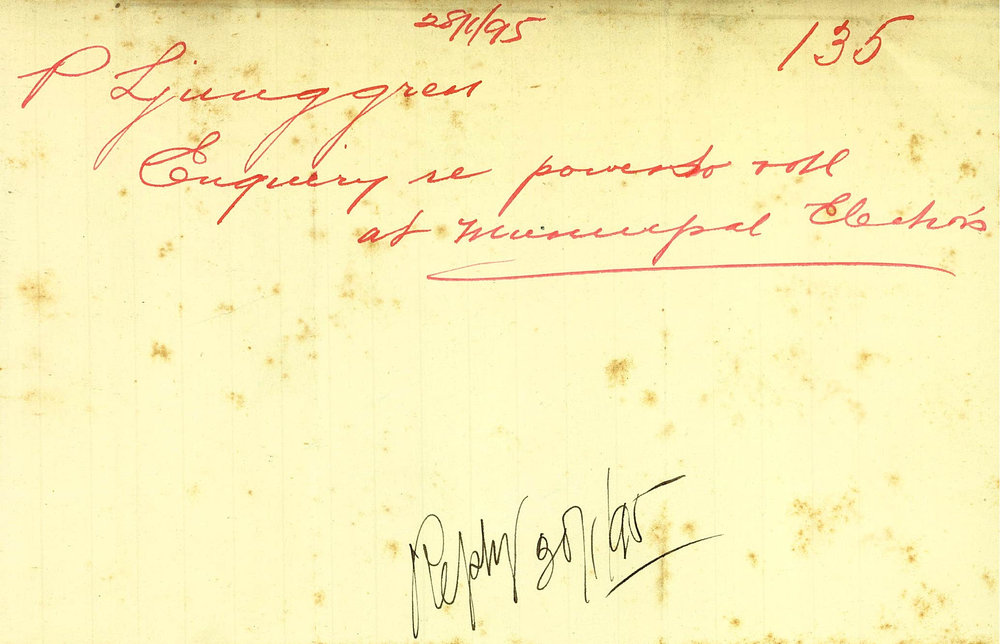 28/1/95
135
P Ljunggren
Enquiry re power to vote
at Municipal Election's
Reply 30/1/95